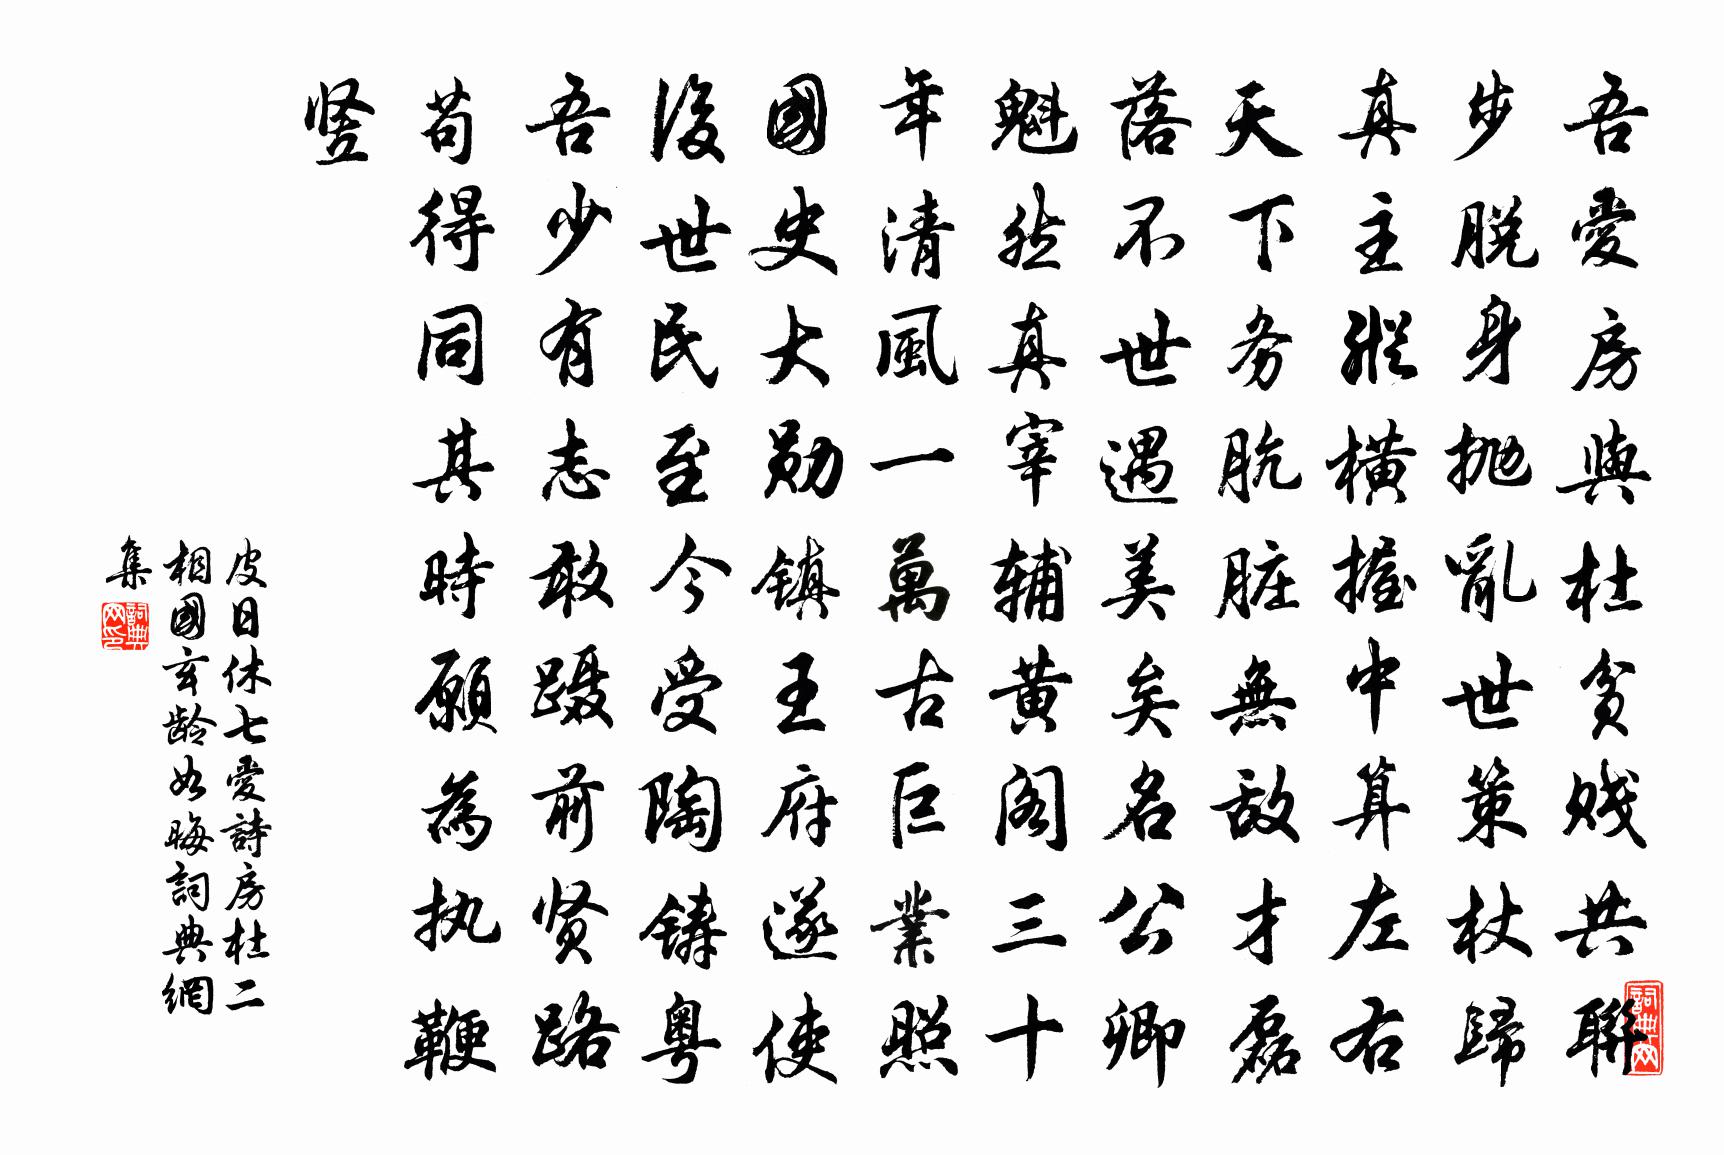 吾愛房與杜貧贱共聯
步脫身抛亂世策杖歸
真主縱橫握中算左右
天下务肮脏無敌才磊
落不世遇美矣名公卿
魁然真宰辅黄阁三十
年清風一萬古巨業照
國史大勋镇王府遂使
後世民至今受陶铸粤
吾少有志敢蹑前贤路
苟得同其時願為执鞭
竖
皮日休七愛詩房杜二
相國玄龄如晦詞典網
集
詞典网印
詞典网